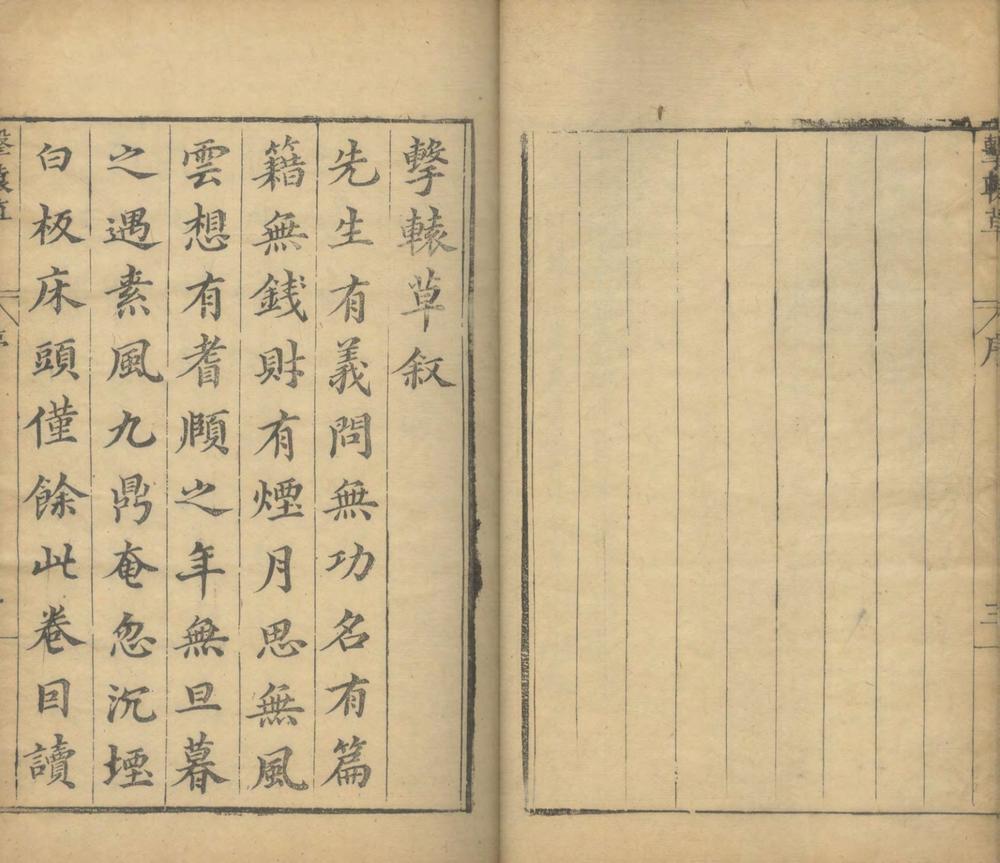 擊轅草
序
三
擊轅草叙
先生有義問無功名有篇
籍無銭財有煙月思無風
雲想有耆頤之年無旦暮
之遇素風九鼎奄忽沉堙
白板床頭僅餘此卷回讀